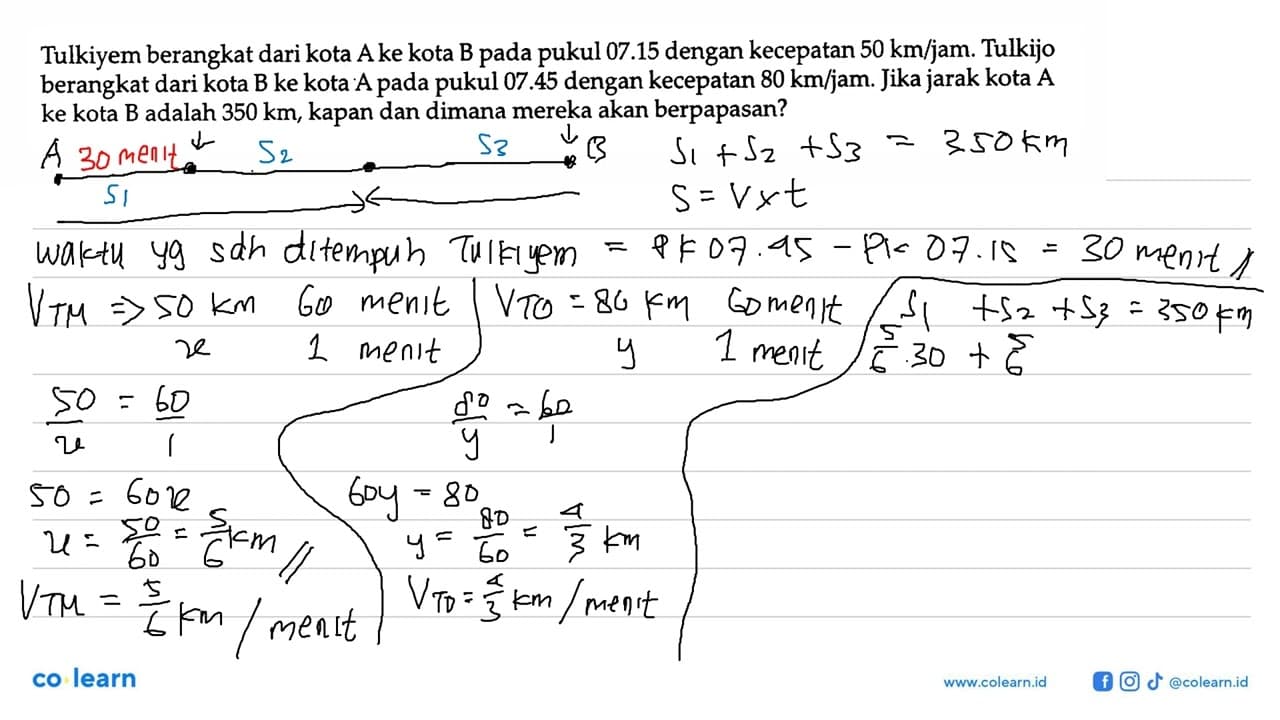 Tulkiyem berangkat dari kota A ke kota B pada pukul 07.15 dengan kecepatan 50 km/jam. Tulkijo
berangkat dari kota B ke kota A pada pukul 07.45 dengan kecepatan 80 km/jam. Jika jarak kota A
ke kota B adalah 350 km, kapan dan dimana mereka akan berpapasan?
A 30 menit S2 S3 B
S1
S1 + S2 + S3 = 350 km
S = V x t
waktu yg sdh ditempuh Tulkiyem = PK 07.45 - PK 07.15 = 30 menit //
VTM => 50 km 60 menit
x 1 menit
50/x = 60/1
50 = 60x
x = 50/60 = 5/6 km //
VTM = 5/6 km / menit
VTO = 80 km 60 menit
y 1 menit
80/y = 60/1
60y = 80
y = 80/60 = 4/3 km
VTO = 4/3 km / menit
S1 + S2 + S3 = 350 km
5/6 . 30 + 5/6
co learn
www.colearn.id
@colearn.id